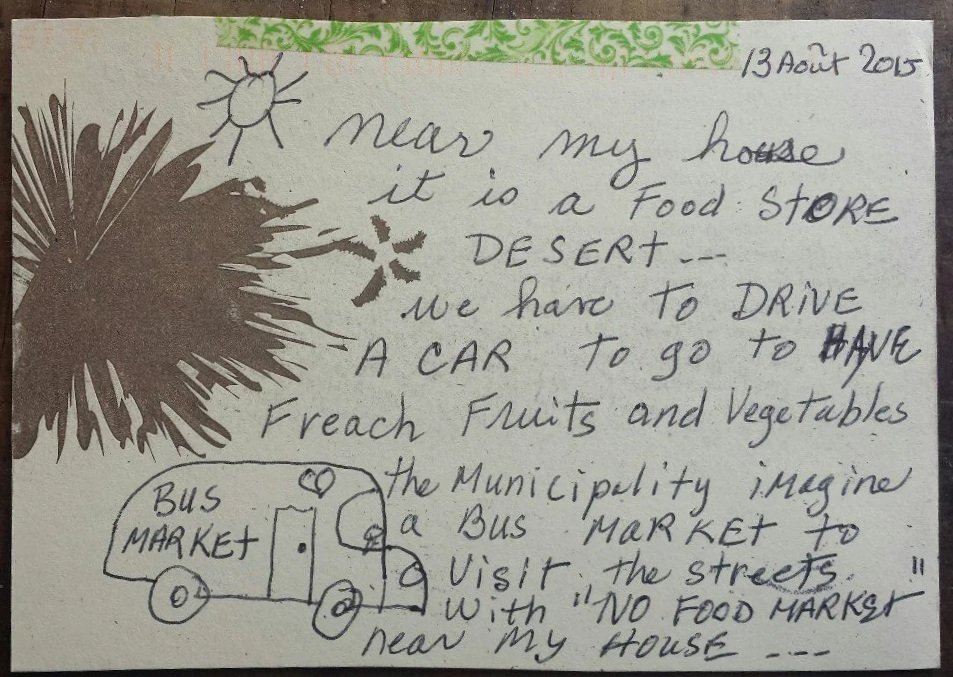 13 Août 2015
near my house
it is a Food StORE
DESERt ---
we have to DRiVE
A CAR to go to HAVE
Freach Fruits and Vegetables
the Municipality imagine
a BUS MaRKEt to
Visit the streets
with "NO FOOD MARKEt"
near My HOUSE ----
BUS
MARKEt